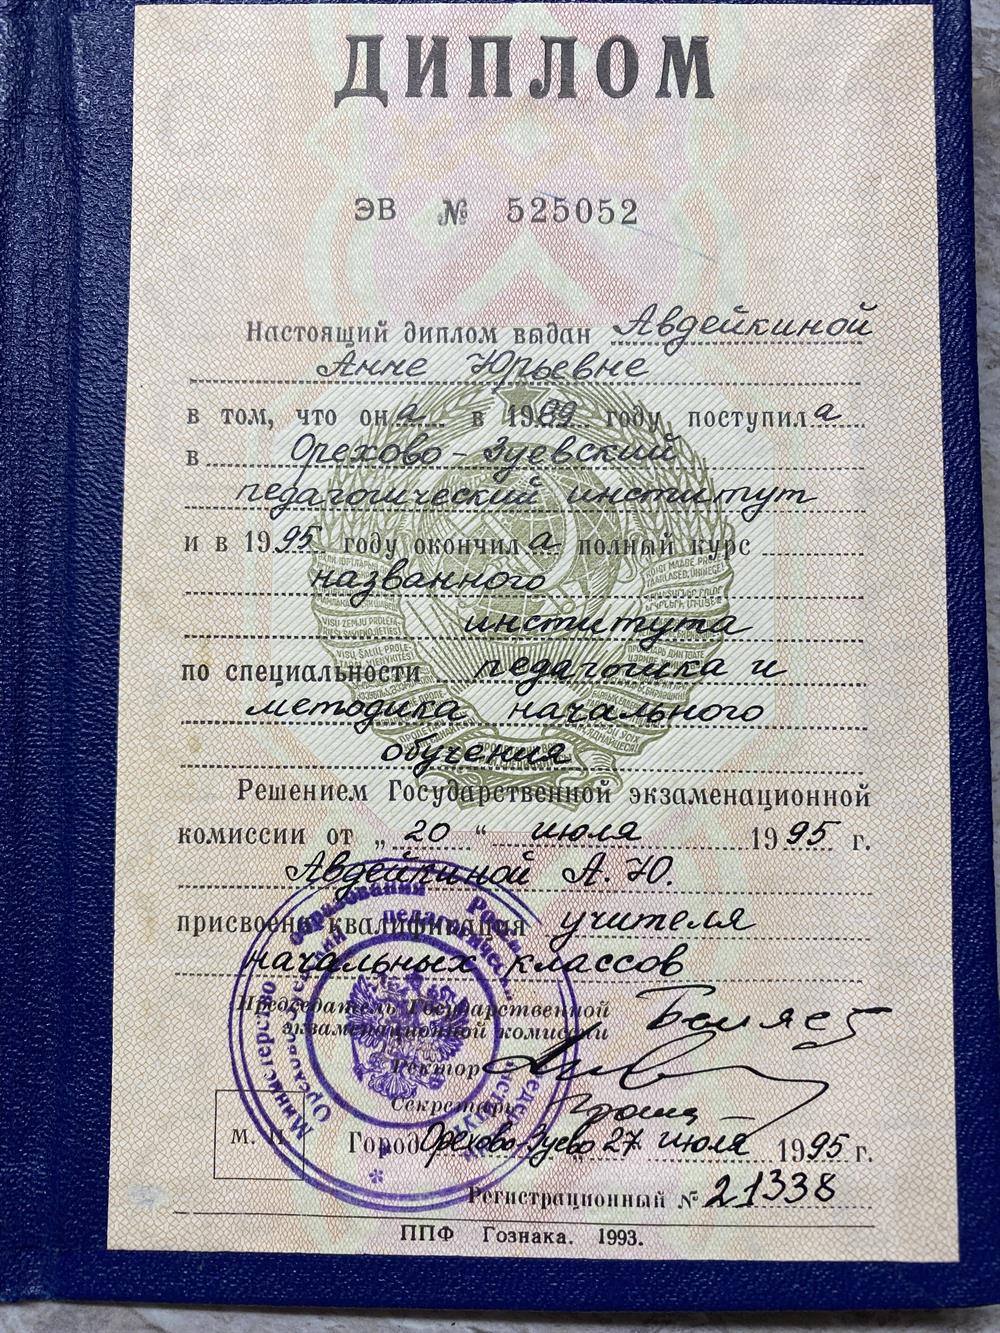 ДИПЛОМ
ЭВ № 525052
Настоящий диплом выдан Авдейкиной
Анне Юрьевне
в том, что она в 1989 году поступила
в Орехово-Зуевский
педагогический институт
и в 1995 году окончила полный курс
названного
института
по специальности педагогика и
методика начального
обучения
Решением Государственной экзаменационной
комиссии от „20“ июля 1995 г.
Авдейкиной А.Ю.
присвоена квалификация учителя
начальных классов
Председатель Государственной
экзаменационной комиссии
Ректор
Секретарь
М. П.
Город Орехово-Зуево 27 июля 1995 г.
Регистрационный № 21338
ППФ Гознака. 1993.